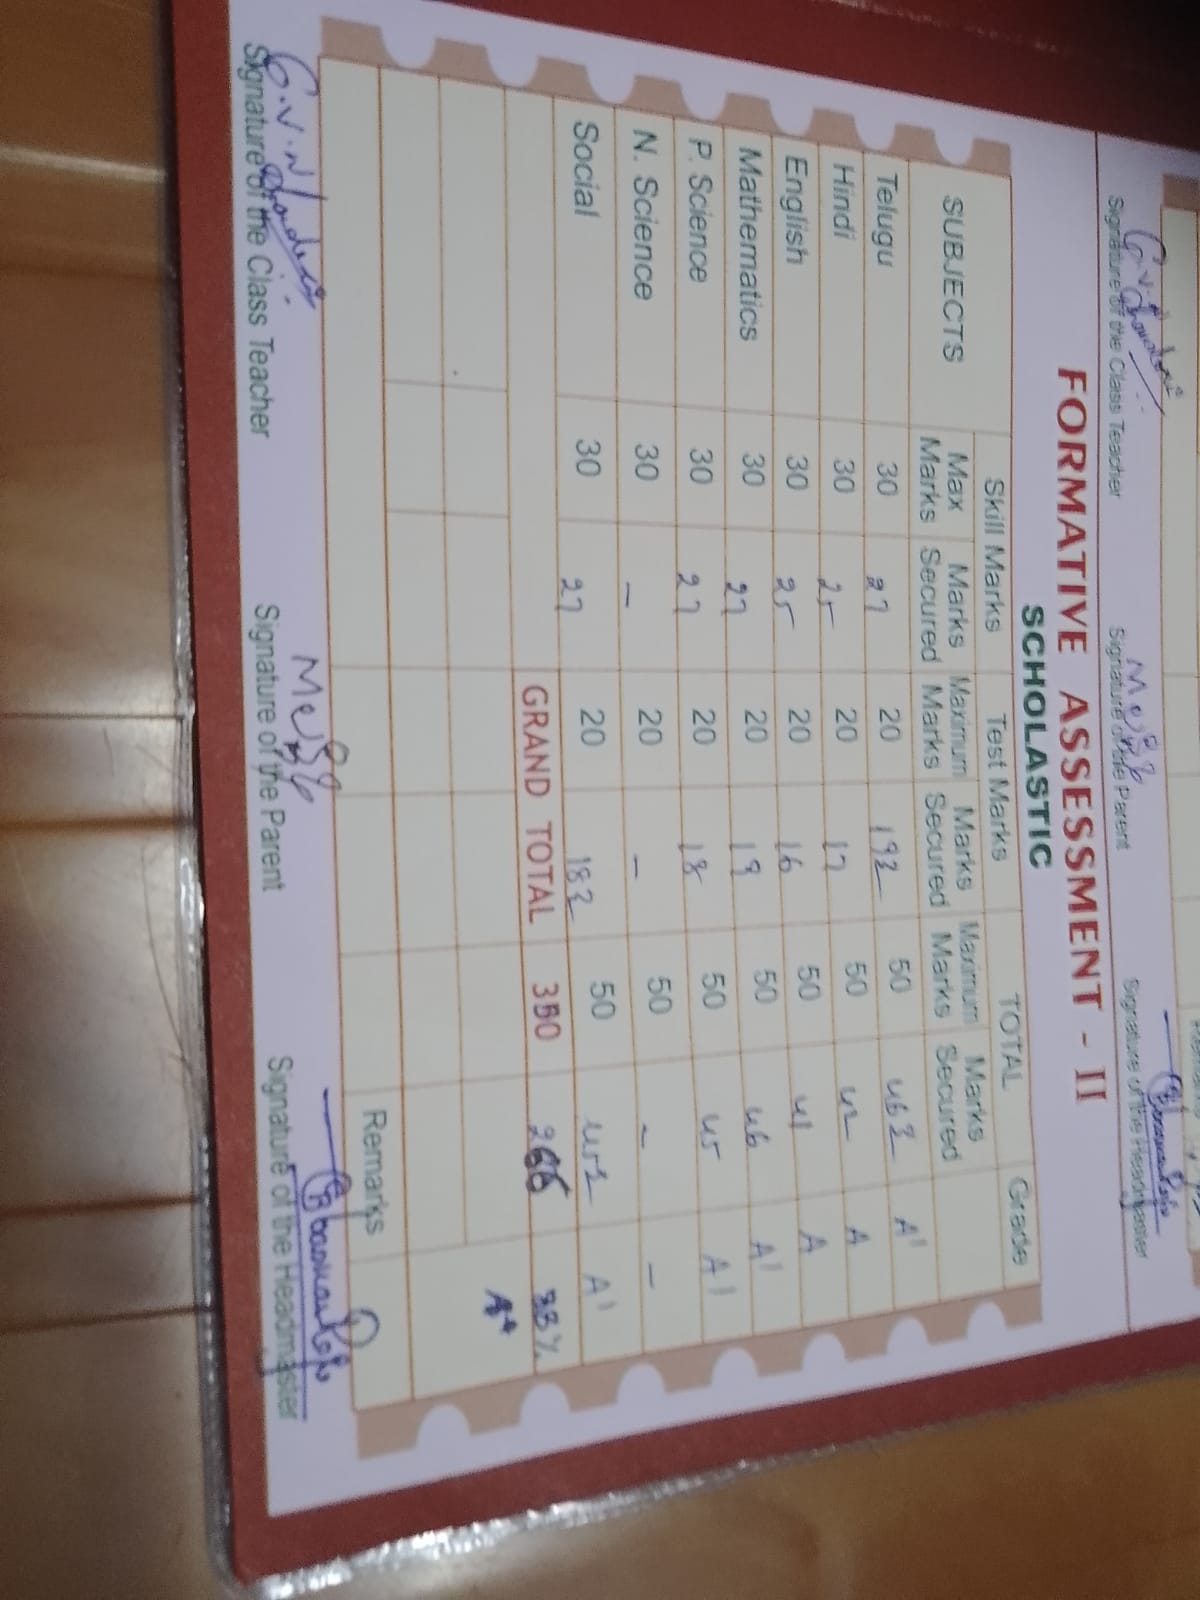 Signature of the Class Teacher Signature of the Parent Signature of the Headmaster
FORMATIVE ASSESSMENT - II
SCHOLASTIC
SUBJECTS Skill Marks Test Marks TOTAL Grade
Max Marks Marks Secured Maximum Marks Marks Secured Maximum Marks Marks Secured
Telugu 30 27 20 19½ 50 46½ A1
Hindi 30 25 20 17 50 42 A
English 30 25 20 16 50 41 A
Mathematics 30 27 20 19 50 46 A1
P. Science 30 27 20 18 50 45 A1
N. Science 30 – 20 – 50 – –
Social 30 27 20 18½ 50 45½ A1
GRAND TOTAL
Remarks
G.V.N
Signature of the Class Teacher Signature of the Parent Signature of the Headmaster